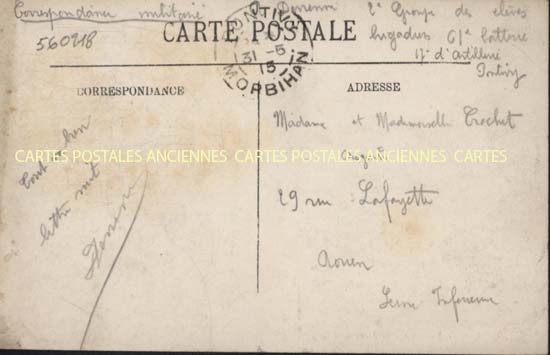 Correspondance militaire
560918
2e Groupe des élèves
brigadiers 61e batterie
17e d'artillerie
Pontivy
CARTE POSTALE
PONTIVY
31-5
15
MORBIHAN
CORRESPONDANCE
ADRESSE
Tout va bien
lettre suit
Madame et Mademoiselle Crochet
29 rue Lafayette
Rouen
Seine Inférieure
CARTES POSTALES ANCIENNES CARTES POSTALES ANCIENNES CARTES POSTALES